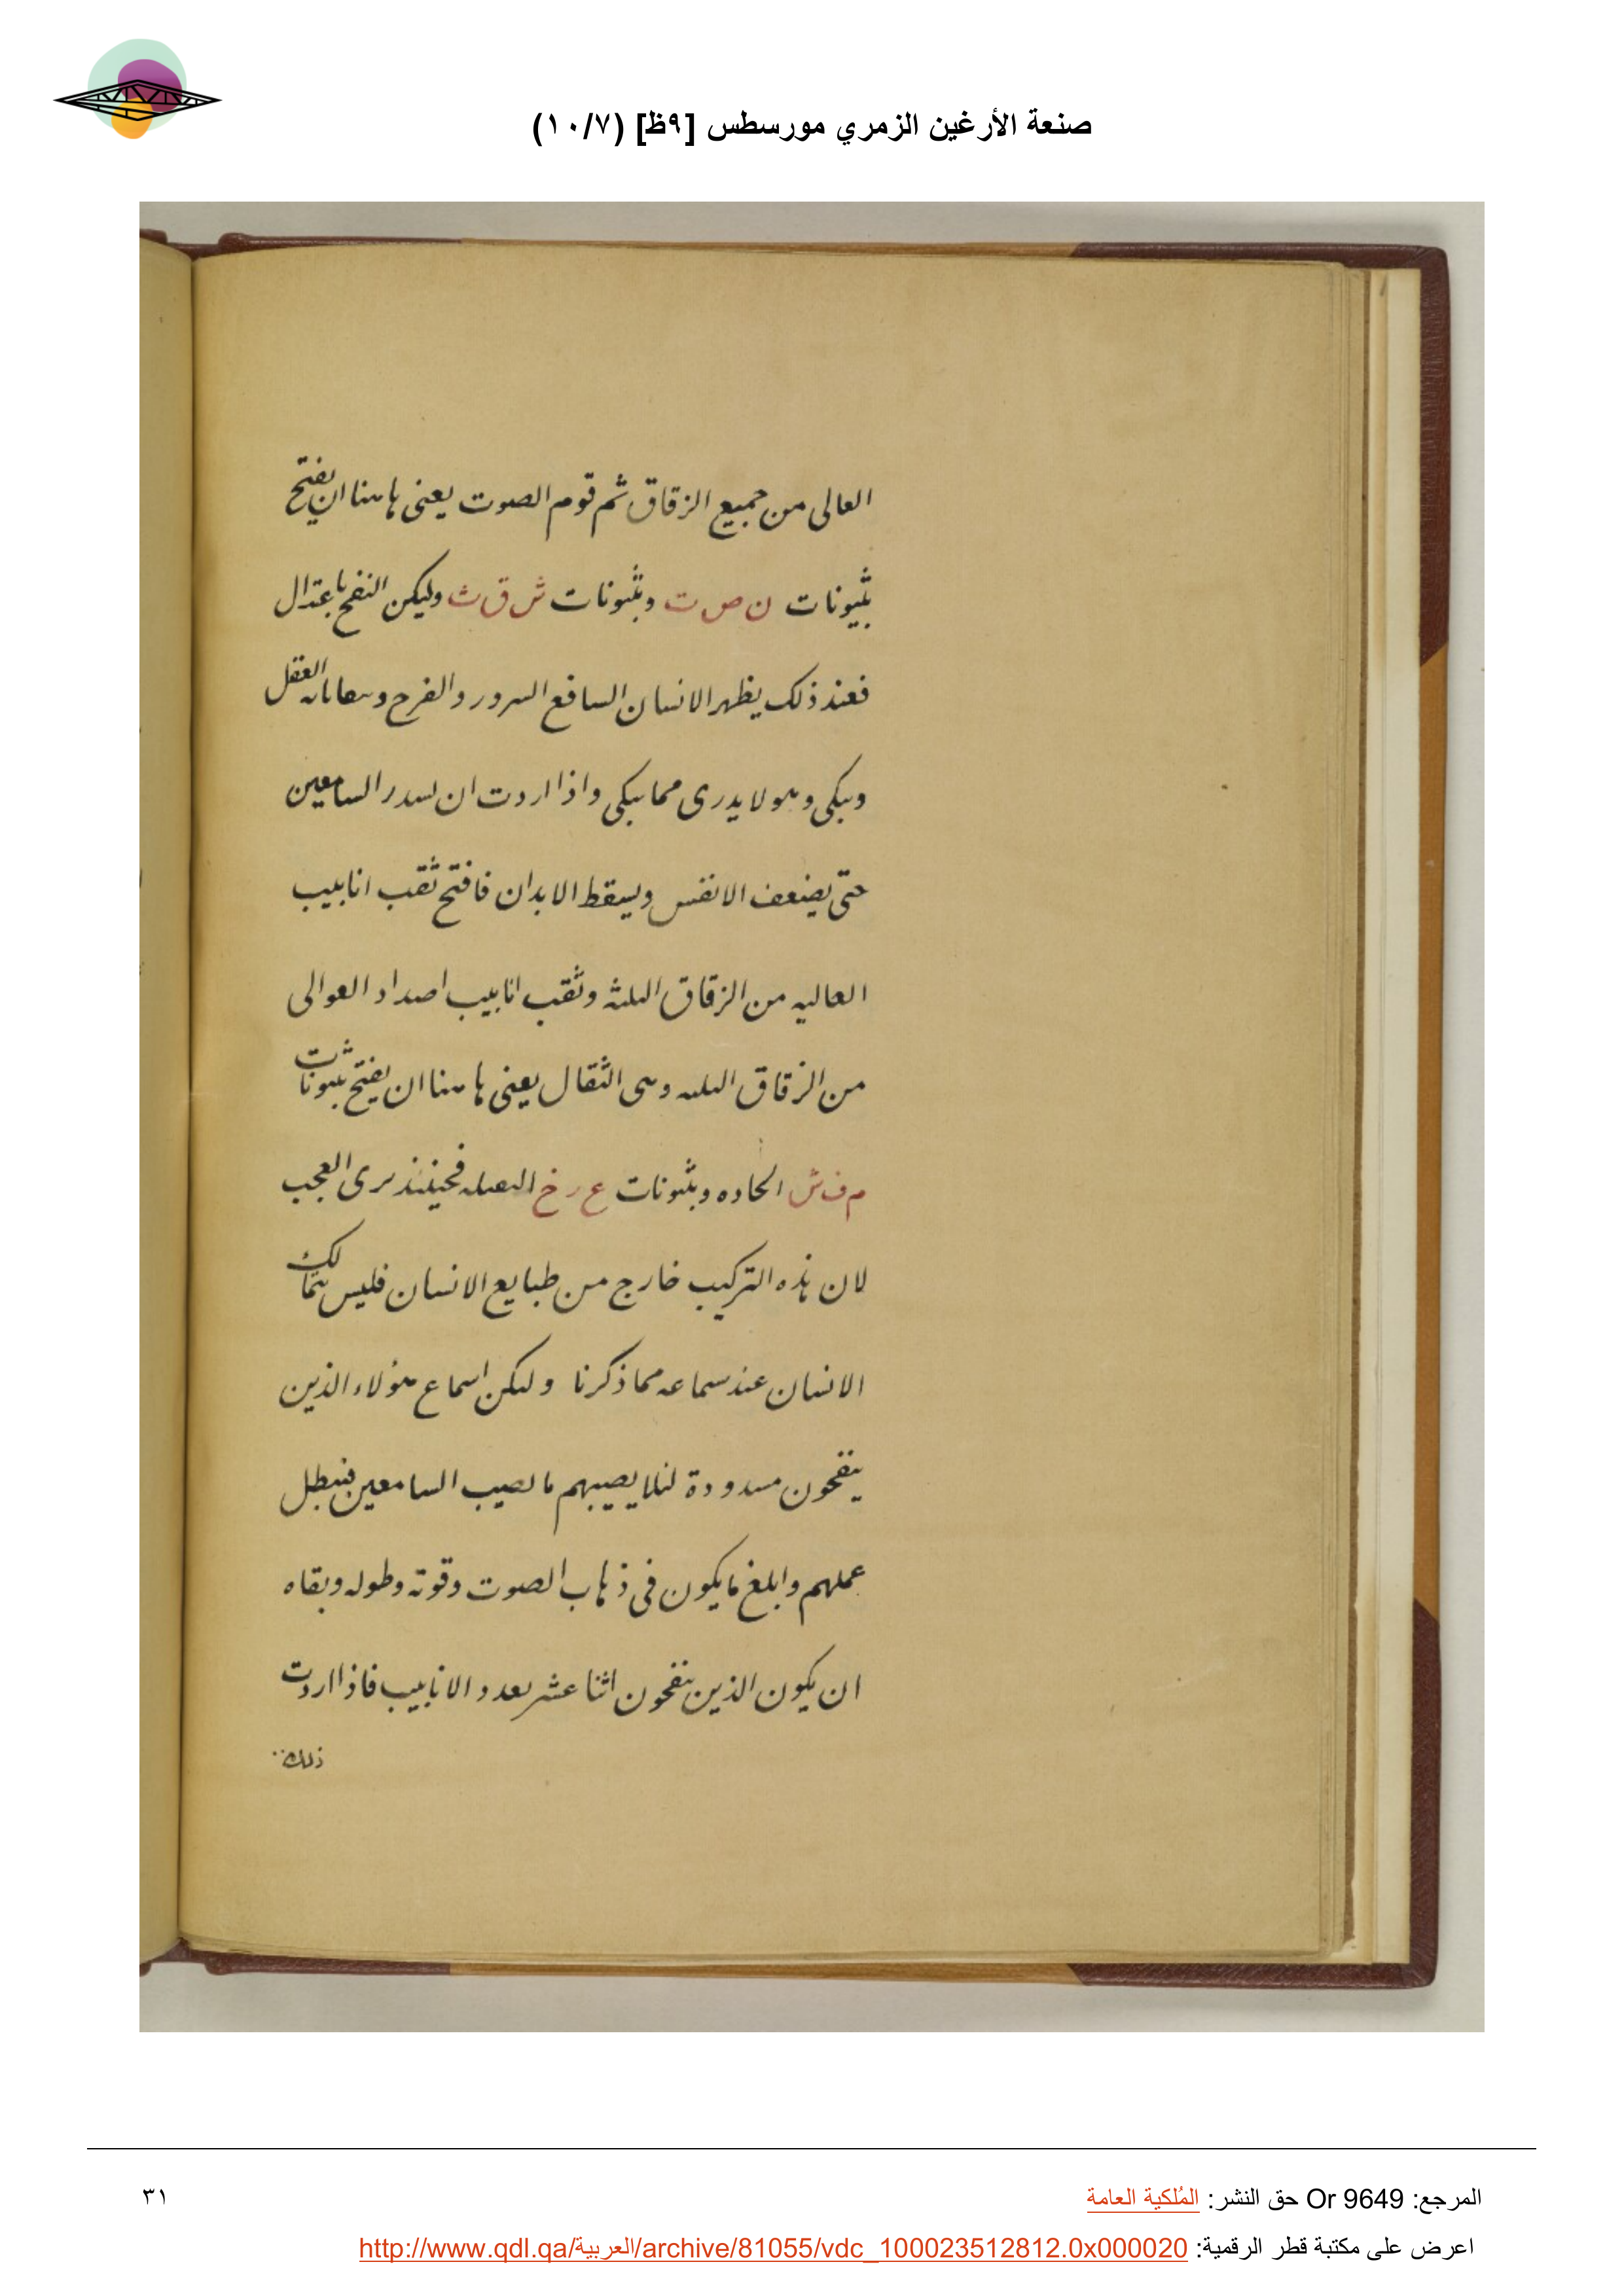 صنعة الأرغين الزمري مورسطس [٩ظ] (١٠/٧)
العالى من جميع الزقاق ثم قوم الصوت يعنى هاهنا ان يفتح
بثيونات ن ص ت وبثيونات ش ق ث وليكن النفخ باعتدال
فعند ذلك يظهر الانسان السافع السرور والفرح العقل
ويبكى وهو لا يدرى مما يبكى واذا اردت ان لسدر السامعين
حتى يضعف الانفس ويسقط الابدان فافتح ثقب انابيب
العاليه من الزقاق الثلثه وثقب انابيب اصداد العوالى
من الزقاق الثلثه وهى الثقال يعنى هاهنا ان يفتح بثيونات
م ف ش الحاده وبثيونات ع ر خ الثقيله فحينئذ ترى العجب
لان هذه التركيب خارج من طبايع الانسان فليس يتمالك
الانسان عند سماعه مما ذكرنا ولكن اسماع هؤلاء الذين
ينفخون مسدودة لئلا يصيبهم ما يصيب السامعين فيبطل
عملهم وابلغ ما يكون فى ذهاب الصوت وقوته وطوله وبقاه
ان يكون الذين ينفخون اثنا عشر بعدد الانابيب فاذا اردت
ذلك
المرجع: Or 9649 حق النشر: المُلكية العامة
٣١
اعرض على مكتبة قطر الرقمية: http://www.qdl.qa/العربية/archive/81055/vdc_100023512812.0x000020